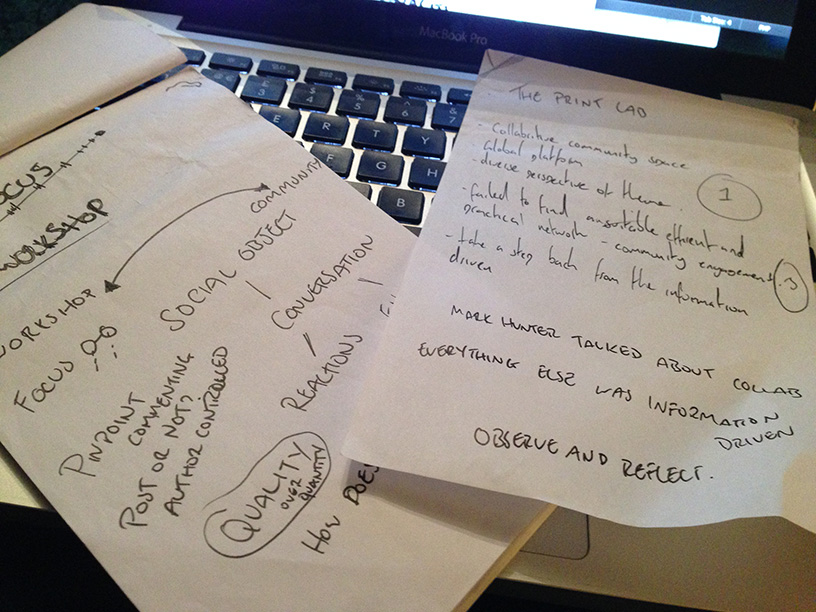 MacBook Pro
Tab Size: 4
PHP
OCUS
WORKSHOP
WORKSHOP
COMMUNITY
FOCUS
SOCIAL OBJECT
CONVERSATION
REACTIONS
PINPOINT
COMMENTING
POST OR NOT?
AUTHOR CONTROLLED
QUALITY
OVER
QUANTITY
HOW DOES
THE PRINT LAB
- Collabritive community space
Global platform
- diverse perspective of theme.
- failed to find efficient and
practical network - community engagement
- take a step back from the information
driven
1
.3
MARK HUNTER TALKED ABOUT COLLAB
EVERYTHING ELSE WAS INFORMATION
DRIVEN
OBSERVE AND REFLECT.
£
3
$
4
%
5
^
6
&
7
E
R
T
Y
F
G
H
B